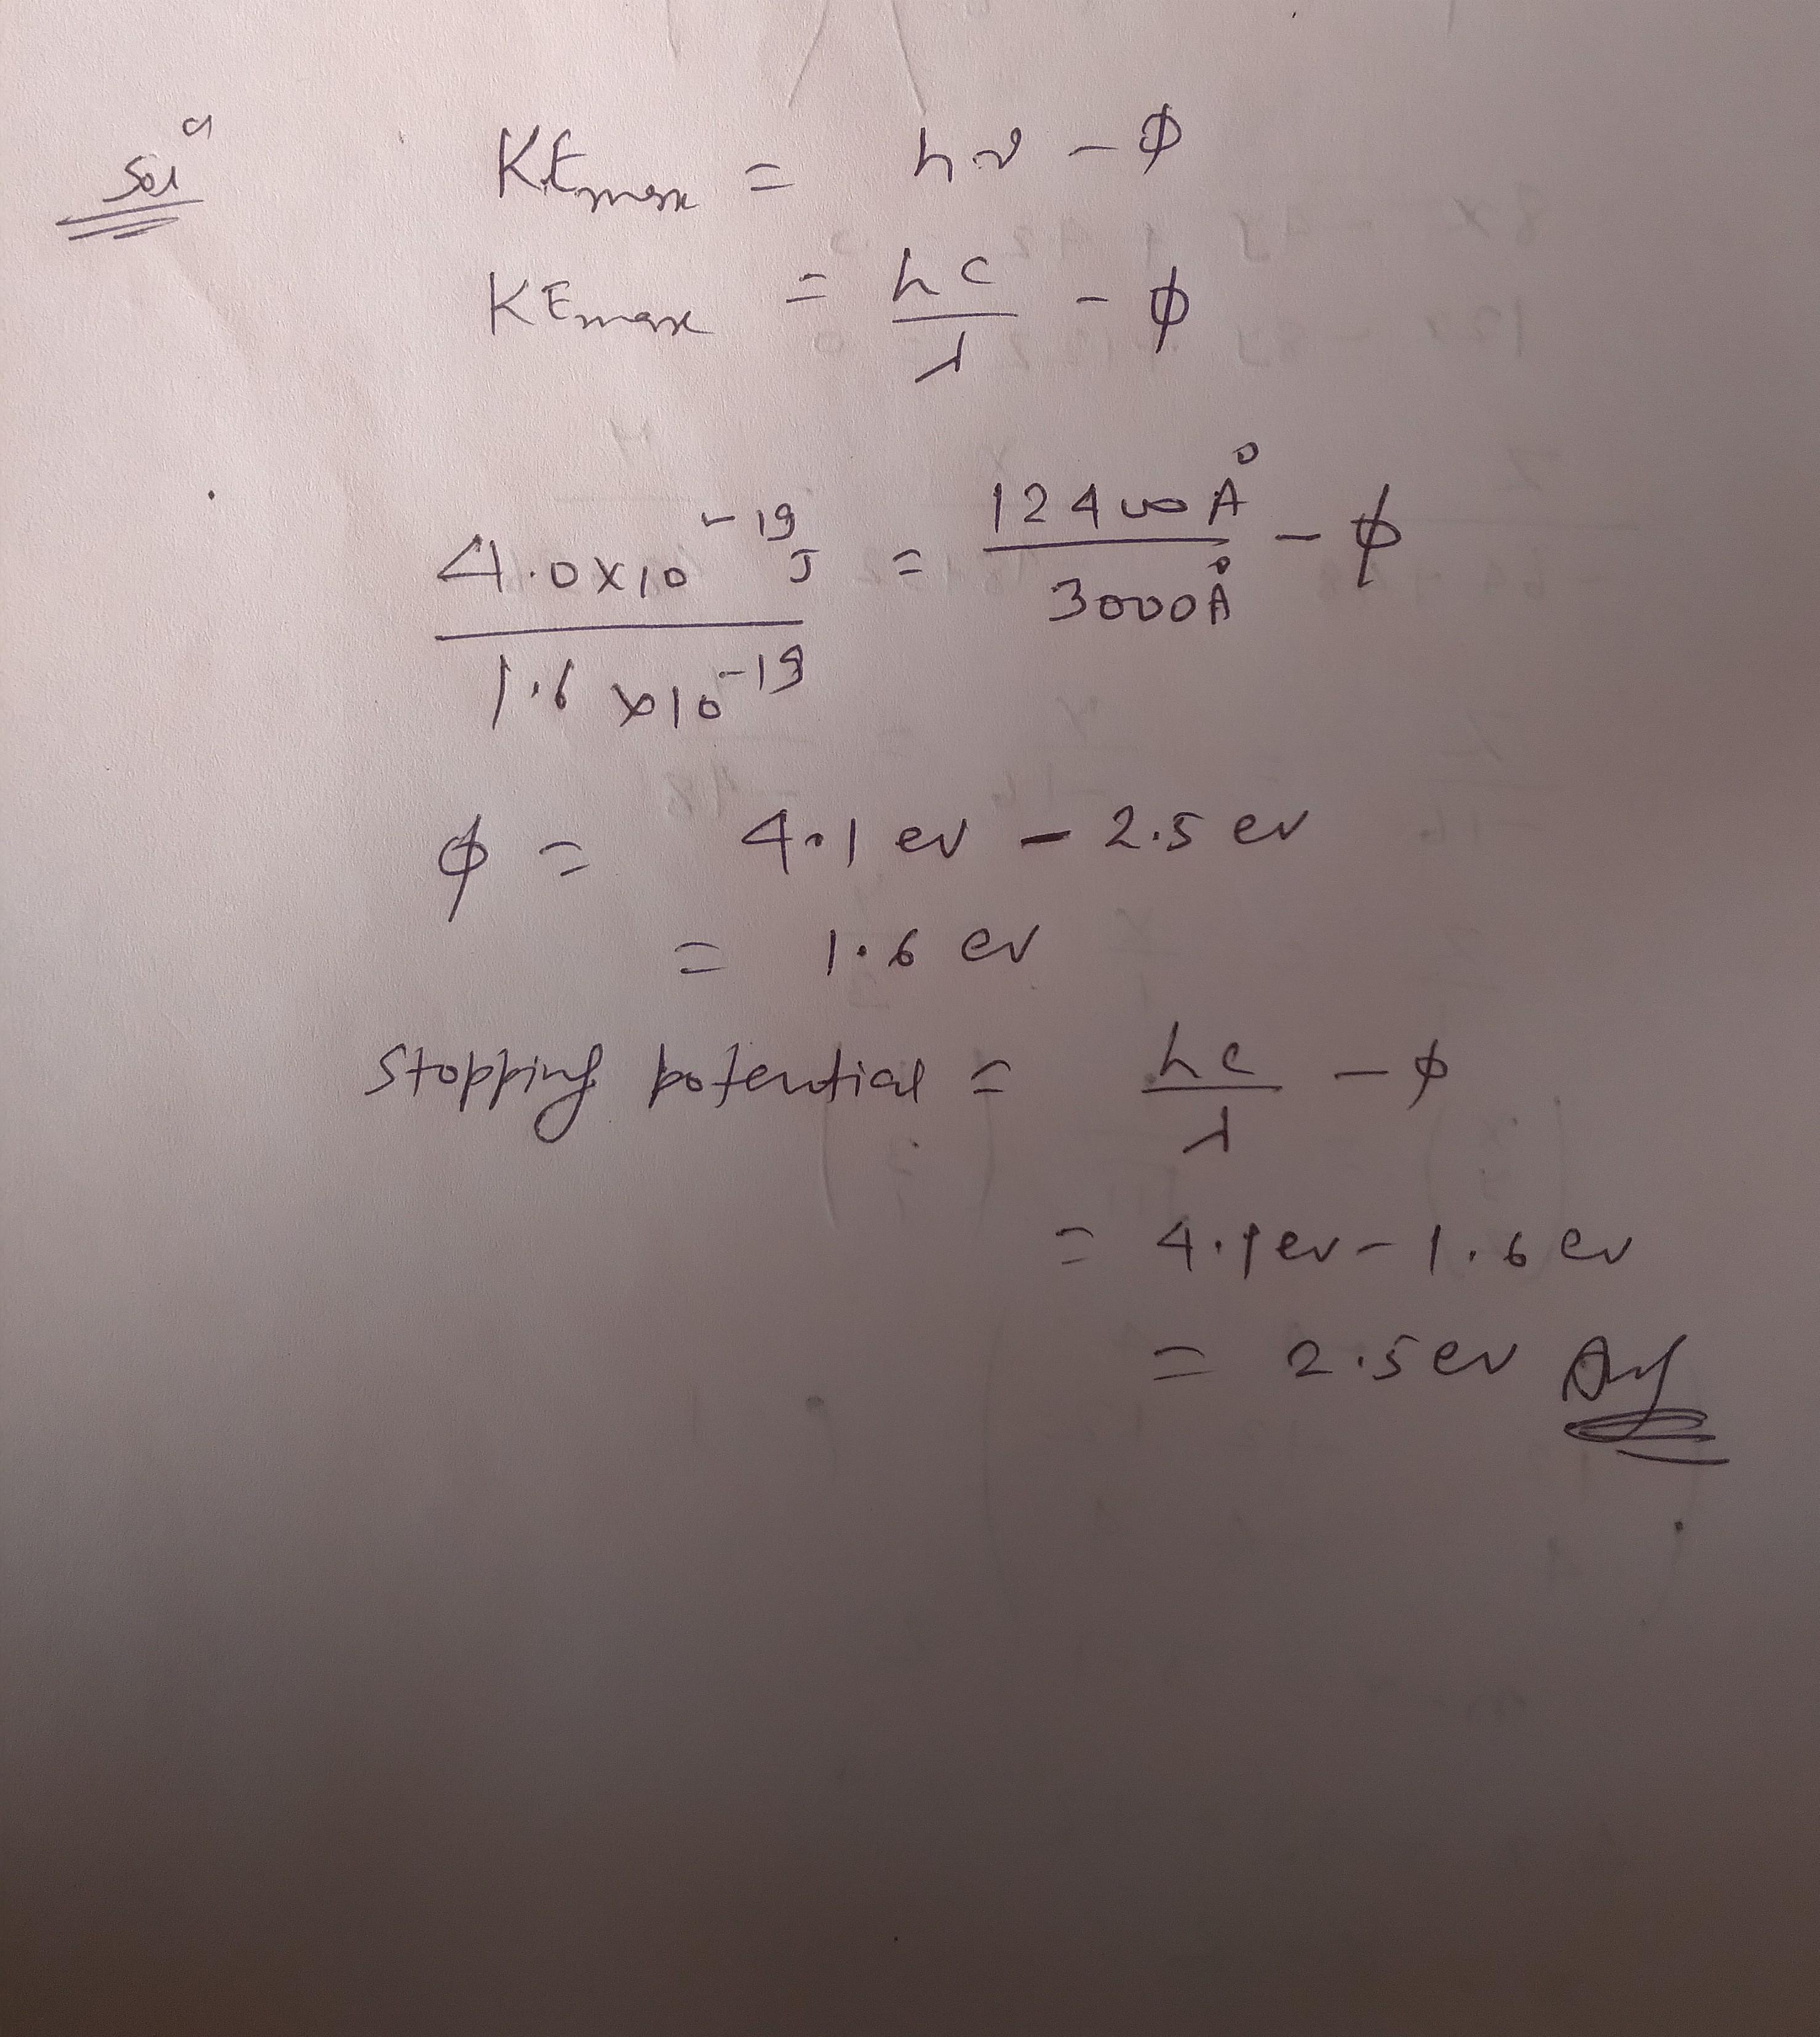 Solⁿ
KEmax = hν - φ
KEmax = hc/λ - φ
4.0×10⁻¹⁹ J / 1.6×10⁻¹⁹ = 12400Å / 3000Å - φ
φ = 4.1 ev - 2.5 ev
= 1.6 ev
Stopping potential = hc/λ - φ
= 4.1ev - 1.6 ev
= 2.5 ev Ans